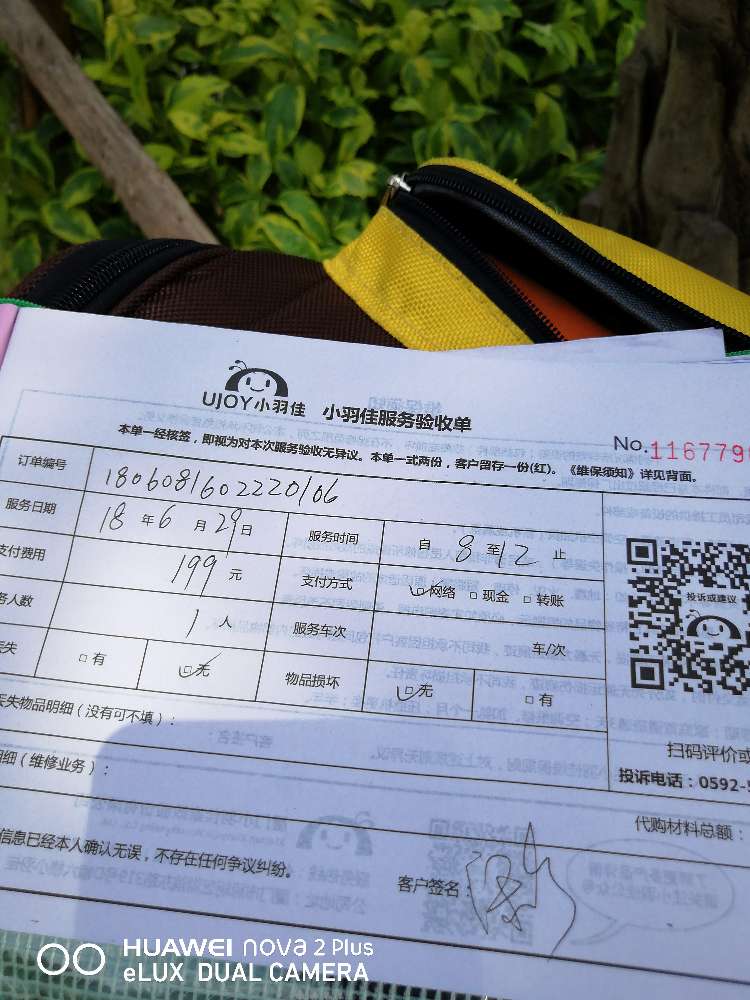 UJOY小羽佳 小羽佳服务验收单
No.116779
本单一经核签，即视为对本次服务验收无异议。本单一式两份，客户留存一份(红)。《维保须知》详见背面。
订单编号 1806081602220106
服务日期 18 年 6 月 29 日 服务时间 自 8 至 12 止
支付费用 199 元 支付方式 网络 现金 转账
务人数 1 人 服务车次 车/次
失 有 无 物品损坏 无 有
投诉或建议
丢失物品明细（没有可不填）：
扫码评价或
明细（维修业务）：
投诉电话：0592-5
代购材料总额：
信息已经本人确认无误，不存在任何争议纠纷。
客户签名：
HUAWEI nova 2 Plus
eLUX DUAL CAMERA